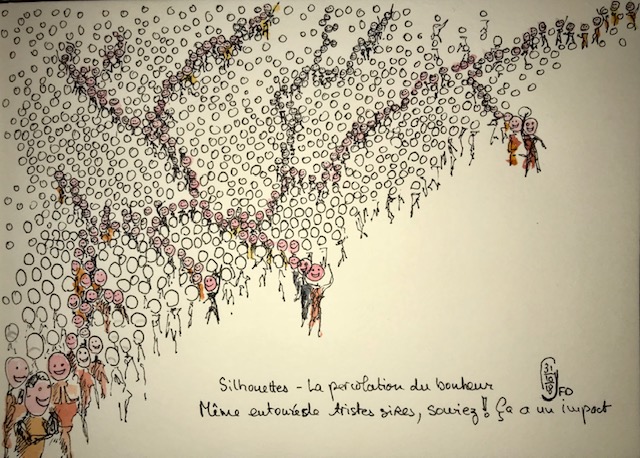 Silhouettes - La percolation du bonheur
Même entouré de tristes sires, souriez! Ça a un impact
FD